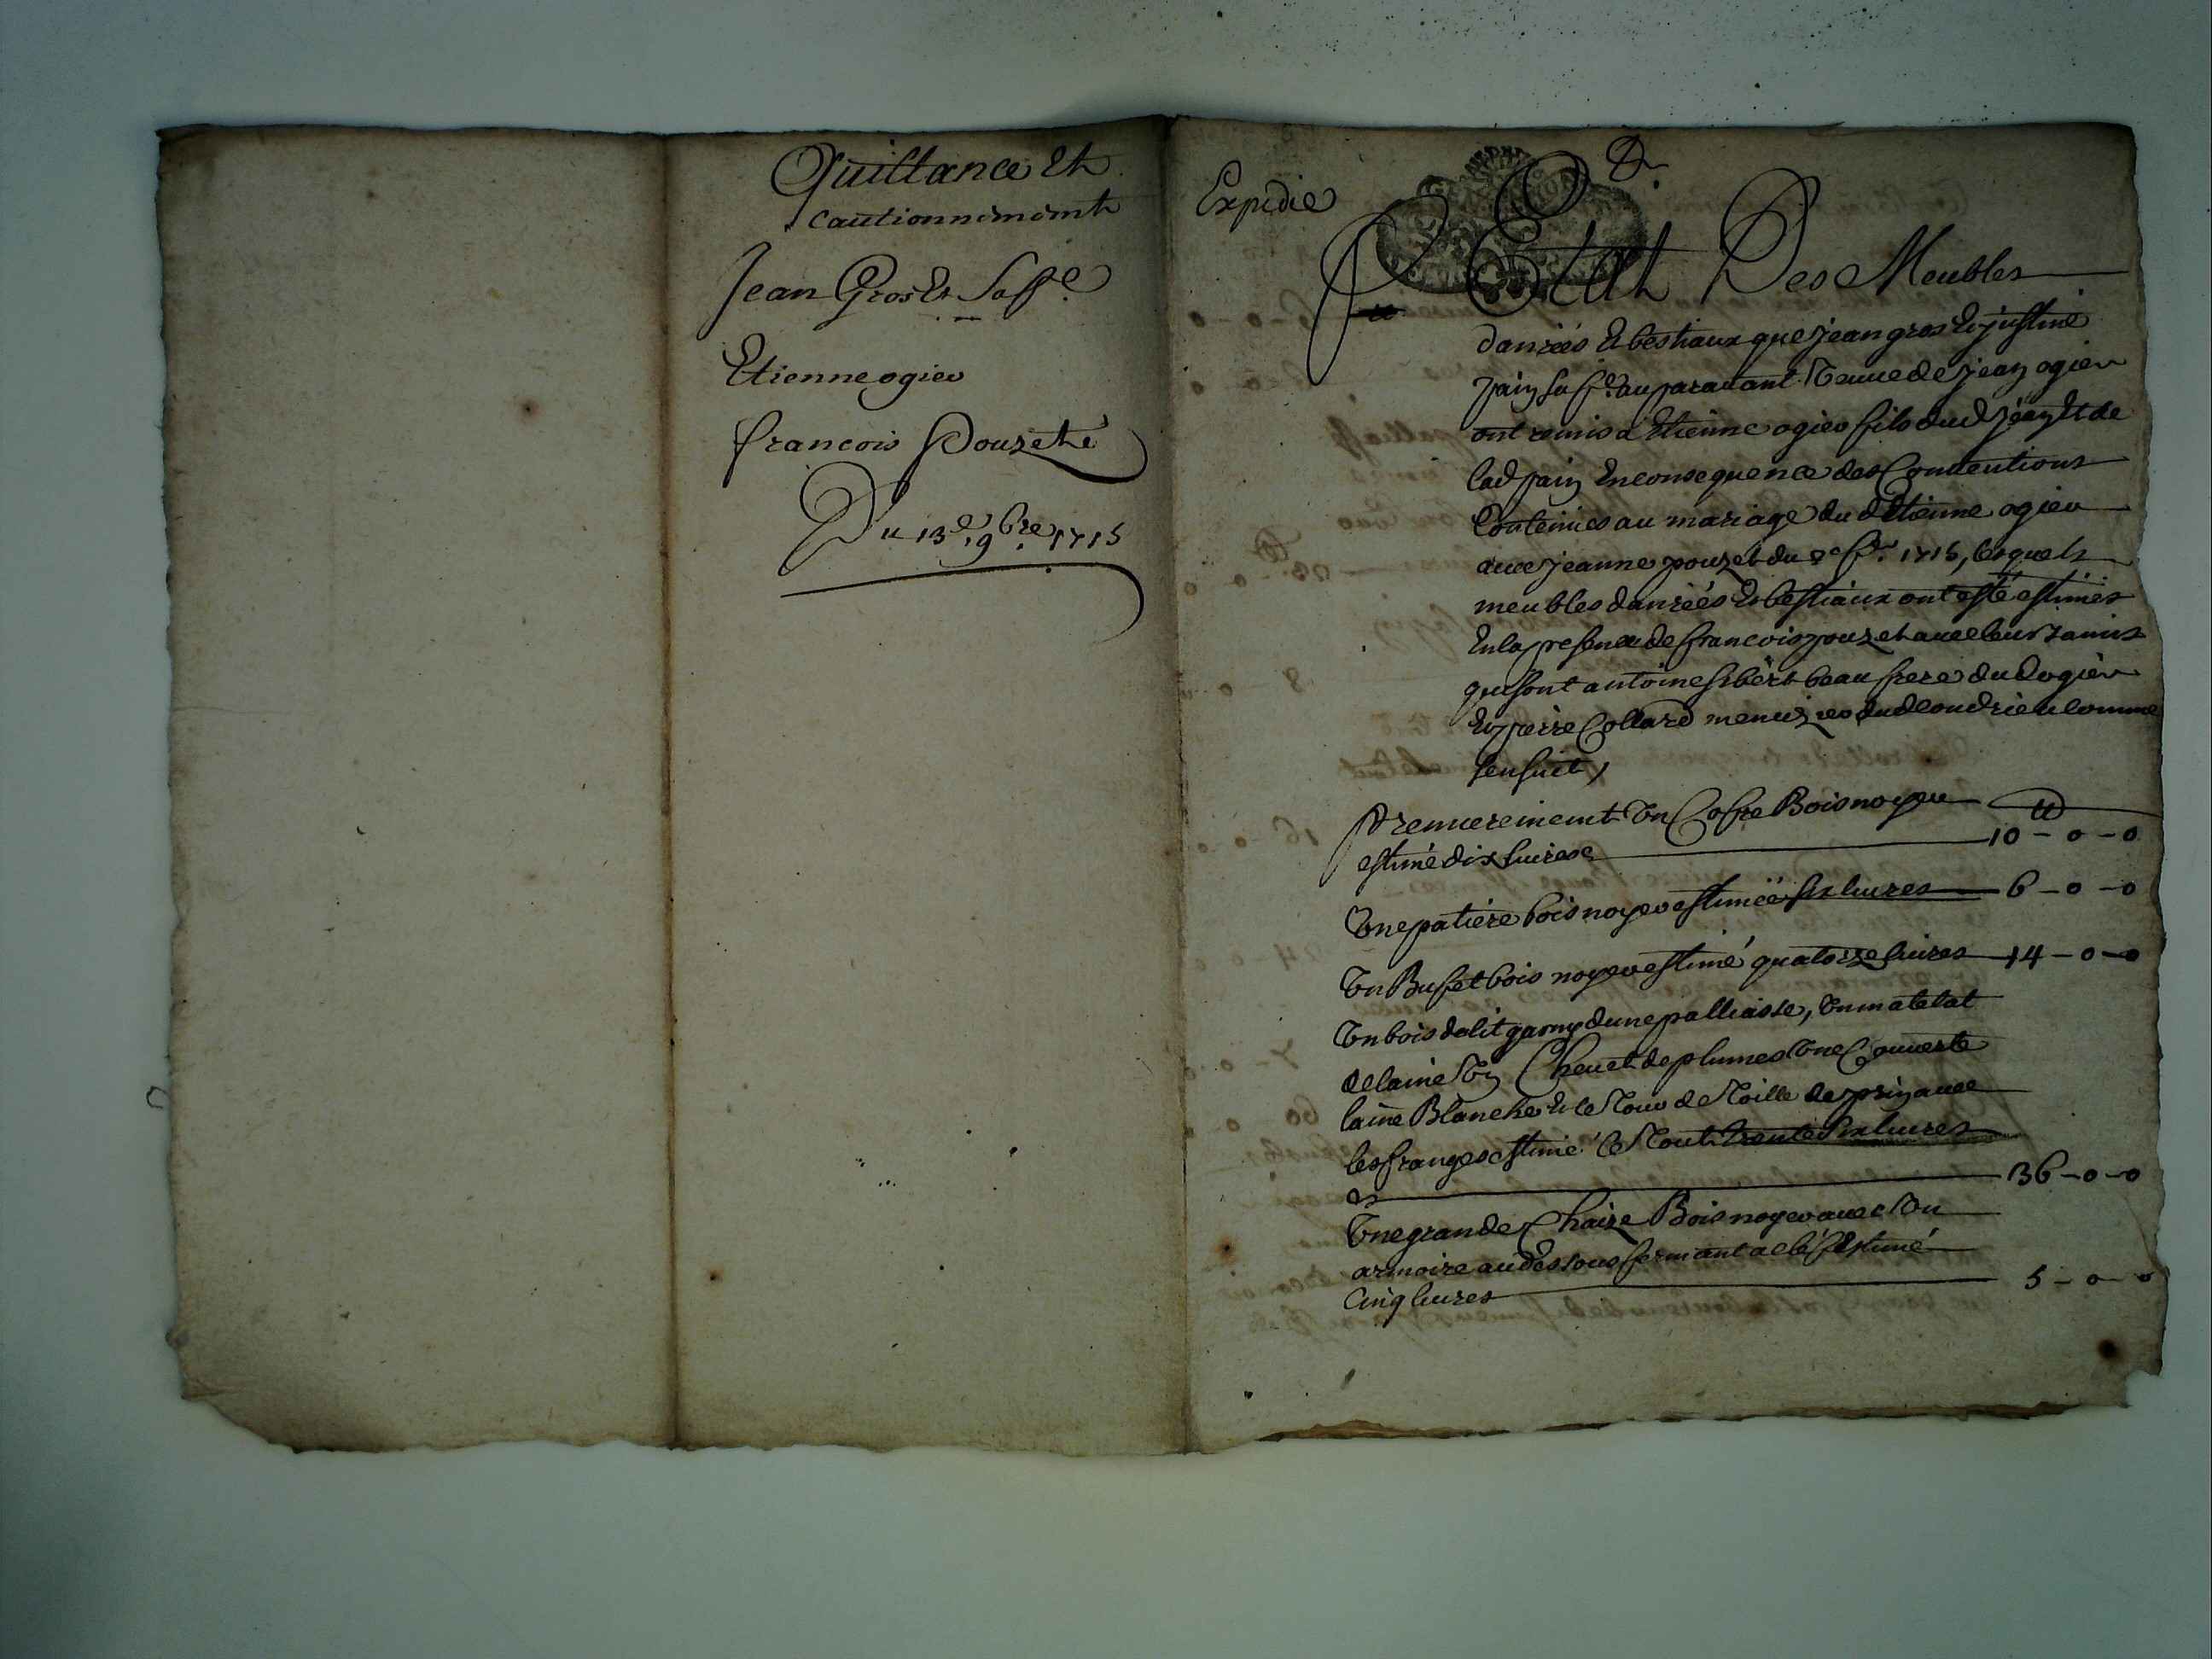 Quittance Et
cautionnement
Jean Gros Et Sa ffe
Etienne ogier
francois Pouzet
Du 13e 9bre 1715
Expedié
Etat Des Meubles
danréés Et bestiaux que jean gros Et justine
pain sa fe auparavant veuve de jean ogier
ont remis a Etienne ogier fils dud jean Et de
lad pain En consequence des Conventions
Contenues au mariage du d Etienne ogier
avec jeanne pouzet du 1715, lesquels
meubles danréés Et bestiaux ont esté estimés
En la presence de francois pouzet avec leurs amis
qui sont antoine sibert beau frere du d ogier
Et pierre Collard menuzier dud condrieu comme
sensuit,
Premierement Un Cofre Bois noyer
estimé dix livres 10 - 0 - 0
Une patiere bois noyer estimée six livres 6 - 0 - 0
Un Bufet bois noyer estimé quatorze livres 14 - 0 - 0
Un bois de lit garny dune palliasse, Un matelat
de laine Un Chevet de plumes Une Couverte
laine Blanche Et le Tour de Toille de prin avec
les franges estimé le Tout Trente six livres
36 - 0 - 0
Une grande Chaize Bois noyer avec son
armoire au dessous fermant a clef Estimé
Cinq livres 5 - 0 - 0